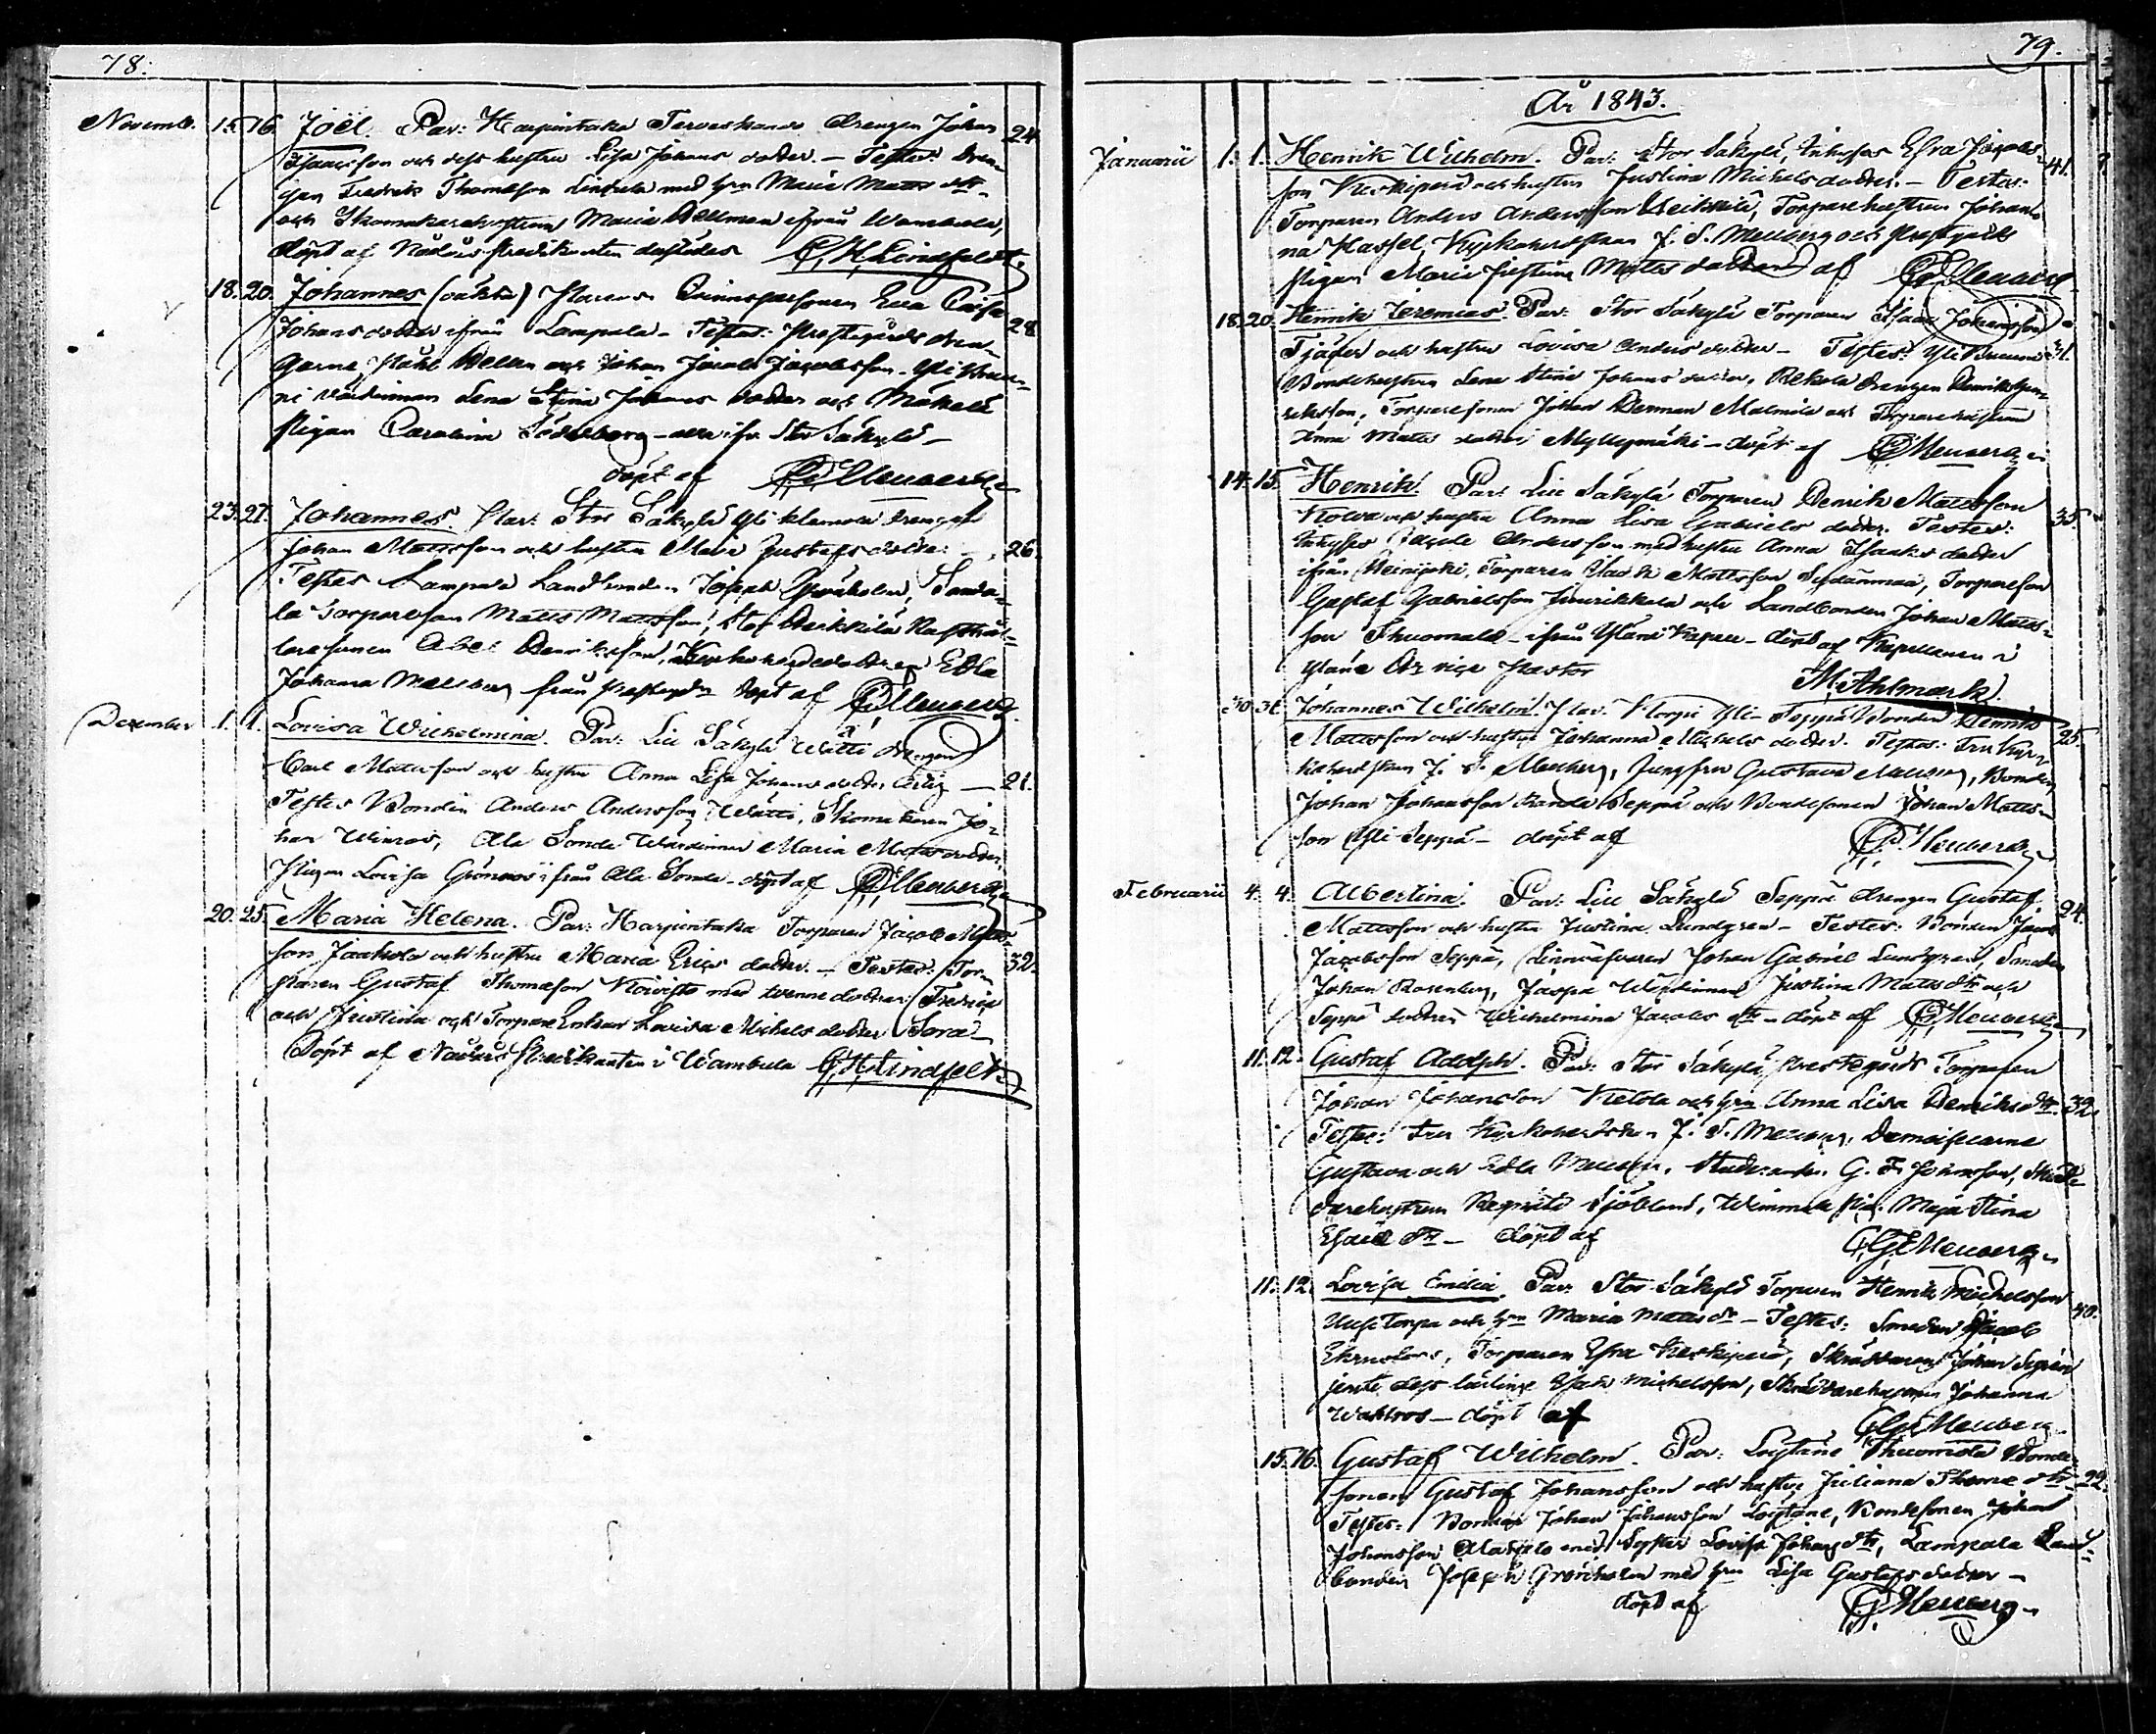 78.
Novemb. 15. 16. Joël. Par: Harpintaka Terveskando drengen Johan 24
Isaacsson och dess hustru Lisa Johans dotter. – Testes: Dren-
gen Fredrik Thomasson med hru Maria Matts dtr
och Skomakarehustrun Maria Wellman ifrån Wambula,
döpt af Nådårs Predikanten derstädes C. H. Lindfeldt.
18. 20. Johannes (oäkta) Parens Qvinspersonen Eva Cajsa 28
Johansdotter ifrån Lampala – Testes: Prestegårds dren-
garne, Påhl och Johan Jacob Jacobsson, Yli
värdinnan Lena Stina Johans dotter och Mäkelä
Pigan Carolina Söderberg – alla ifr. Stor Säkylä –
döpt af G. Meuberg
23. 27. Johannes. Par: Stor Säkylä Yli drengen
Johan Mattsson och hustru Maria Gustafs dotter – 26.
Testes Lampala Landbonden Joseph Grönholm, Sonda-
la Torparesonen Matts Mattsson, Stor Heikkilä
sonen Abel Henriksson, Kyrkoherdedottren Edla
Johanna Meuberg från Prestegrdn döpt af G. Meuberg
December 1. 1. Lovisa Wilhelmina. Par: Lill Säkylä Wätti drengen
Carl Mattsson och hustru Anna Lisa Johans dotter – 21.
Testes Bonden Anders Andersson Wätti, Skomakaren Jo-
han Winroos, Ala Sonda Wärdinnan Maria Matts dotter,
Pigan Lovisa Grönroos ifrån Ala Sonda – döpt af G. Meuberg
20. 25. Maria Helena. Par: Harpintaka Torparen Jacob Matts-
son Jaakola och hustru Maria Erics dotter. – Testes: Tor- 32.
paren Gustaf Thomasson Koivisto med tvenne döttrar: Fredrica
och Justina och Torpare Enkan Lovisa Michels dotter Sora –
Döpt af Nådårs Predikanten i Wambula C. H. Lindfelt
79.
År 1843.
Januarii 1. 1. Henrik Wilhelm. Par: Stor Säkylä, Inhyses Efra Jacobs- 41.
son Keskiperä och hustru Justina Michelsdotter. – Testes:
Torparen Anders Andersson Heikkilä, Torparehustrun Johan-
na Hassel, Kyrkoherdskan J. S. Meuberg och Prestgårds
Pigan Maria Justina Matts dotter af G. Meuberg
18. 20. Henrik Jeremias. Par: Stor Säkylä Torparen Isaac Johansson
Tjäder och hustru Lovisa Anders dotter – Testes: Yli 31.
Bondehustrun Lena Stina Johans dotter, Rekola drengen Henrik Hen-
riksson, Torparesonen Johan Herman Malmila och Torparehustrun
Anna Matts dotter Myllymäki – döpt af G. Meuberg
14. 15. Henrik. Par: Lill Säkylä Torparen Henrik Mattsson
Kolva och hustru Anna Lisa Gabriels dotter. Testes: 35.
Inhyses Jacob Andersson med hustru Anna Isaaks dotter
ifrån Heinijoki, Torparen Isaak Mattsson Sydänmaa, Torpareson
Gustaf Gabrielsson Junnikkala och Landbonden Johan Matts-
son Thuomala – ifrån Yläne Kapell – döpt af Kapellanen i
Yläne Dr vice Pastor
M. Ahlmark.
30. 31. Johannes Wilhelm. Par: Korpi Yli-Seppä Bonden Henrik
Mattsson och hustru Johanna Michels dotter. Testes: Fru Kyr- 25.
koherdskan J. S. Meuberg, Jungfru Gustava Meuberg, Bonden
Johan Johansson Seppä och Bondesonen Johan Matts-
son Yli Seppä – döpt af G. Meuberg
Februarii 4. 4. Albertina. Par: Lill Säkylä Seppä drengen Gustaf 24.
Mattsson och hustru Justina Lundgren – Testes: Bonden Jacob
Jacobsson Seppä, Linnväfvaren Johan Gabriel Lundgren, Smeden
Johan Rosenberg, Jaspa Wärdinnan Justina Matts dtr och
Seppä dottren Wilhelmina Jacobs dtr – döpt af G. Meuberg
11. 12. Gustaf Adolph. Par: Stor Säkylä Prestegårds Torparen
Johan Johansson Ketola och hru Anna Lisa Henriks dtr 32.
Testes: Fru Kyrkoherdskan J. S. Meuberg, Demoisellerne
Gustava och Edla Meuberg, Studeranden G. F. Johansson, Skräd-
darehustrun Regina Sjöblom, Wimmala Pig. Maja Stina
Esaias dtr – döpt af G. Meuberg
11. 12. Lovisa Emilia. Par: Stor Säkylä Torparen Henrik Michelsson
Uusitorpa och hru Maria Matts dtr – Testes: Smeden Jacob 40.
Ehrnroos, Torparen Efra Keskiperä, Skräddaren Johan Segrén
jemte dess lärling Isak Michelsson, Skräddarehustrun Johanna
Wahlroos – döpt af G. Meuberg
15. 16. Gustaf Wilhelm. Par: Löytäne Thuomola Bonde-
sonen Gustaf Johansson och hustru Juliana Thome dtr 22.
Testes: Bonden Johan Johansson Löytäne, Bondesonen Johan
Johansson Mattila med Syster Lovisa Johans dtr, Lampala Land-
bonden Joseph Grönholm med hru Lisa Gustafs dotter –
döpt af G. Meuberg